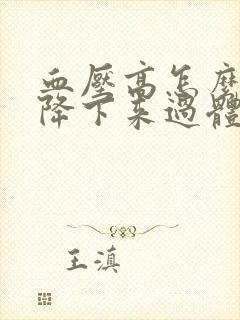 血壓高怎麼
降下來過體
王滇